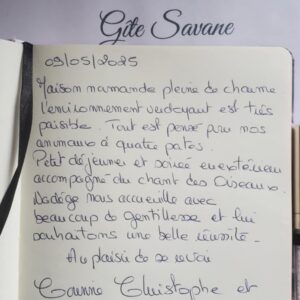 Gîte Savane
09/05/2025
Maison normande pleine de charme
l'environnement verdoyant est très
paisible. Tout est pensé pour nos
animaux à quatre pates.
Petit déjeuner et soirée en extérieur
accompagné du chant des Oiseaux.
Nadège nous accueille avec
beaucoup de gentillesse et lui
souhaitons une belle réussite -
Au plaisir de se revoir
Christophe et